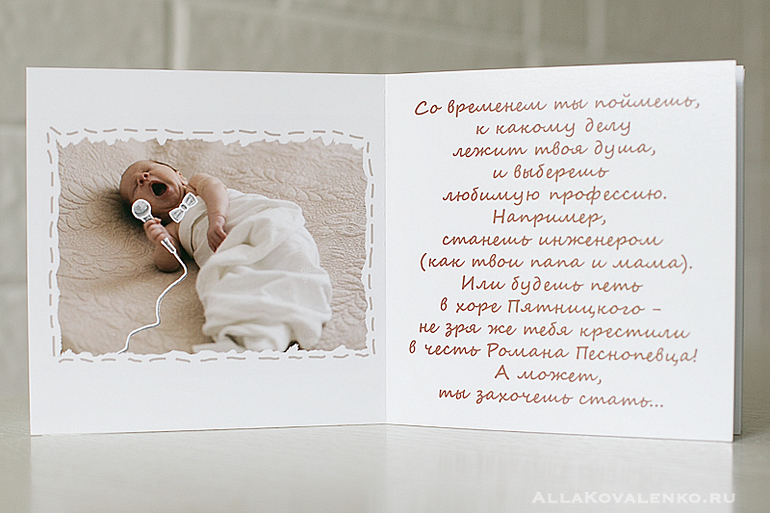 Со временем ты поймешь,
к какому делу
лежит твоя душа,
и выберешь
любимую профессию.
Например,
станешь инженером
(как твои папа и мама).
Или будешь петь
в хоре Пятницкого –
не зря же тебя крестили
в честь Романа Песнопевца!
А может,
ты захочешь стать...
AllaKovalenko.ru